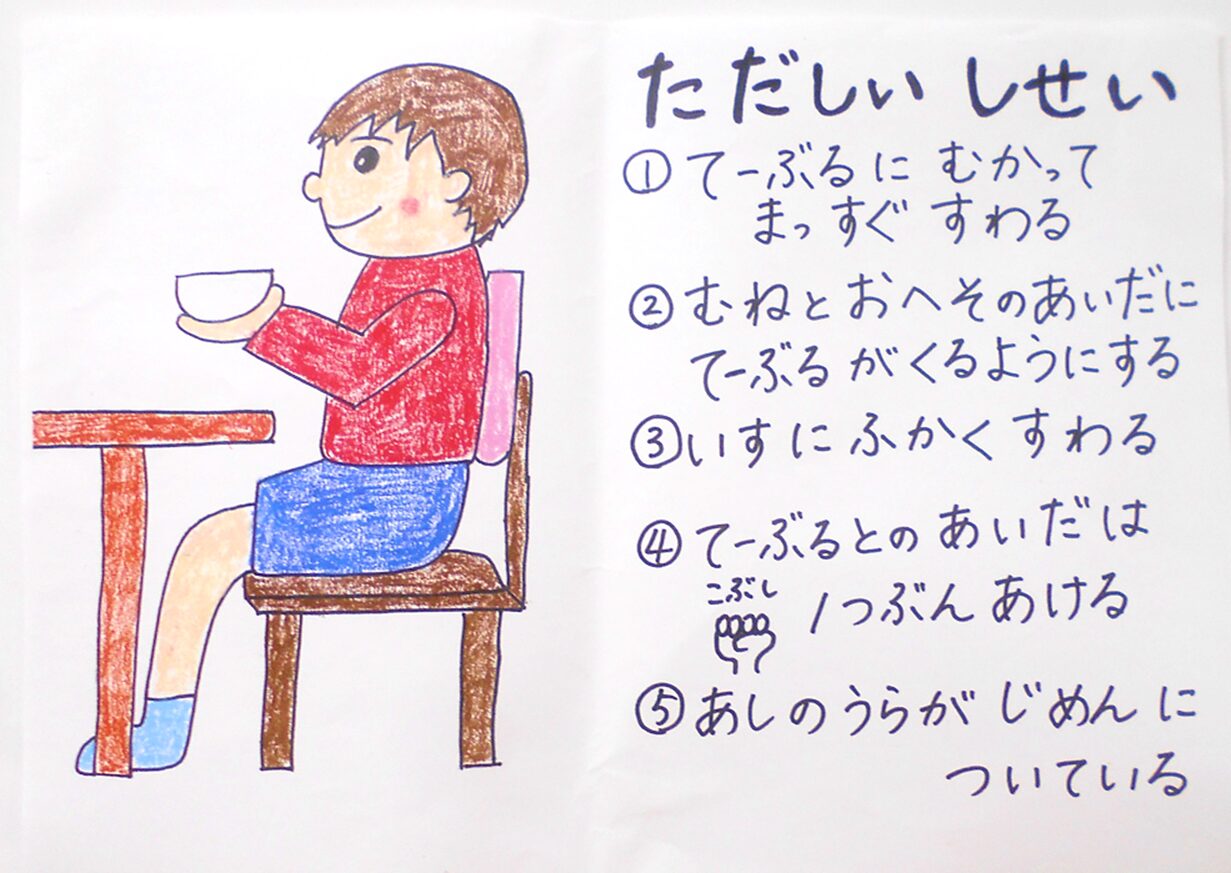 ただしい しせい
① てーぶるに むかって
まっすぐ すわる
② むねと おへそのあいだに
てーぶるがくるようにする
③ いすに ふかく すわる
④ てーぶるとの あいだは
こぶし
1つぶん あける
⑤ あしのうらが じめんに
ついている